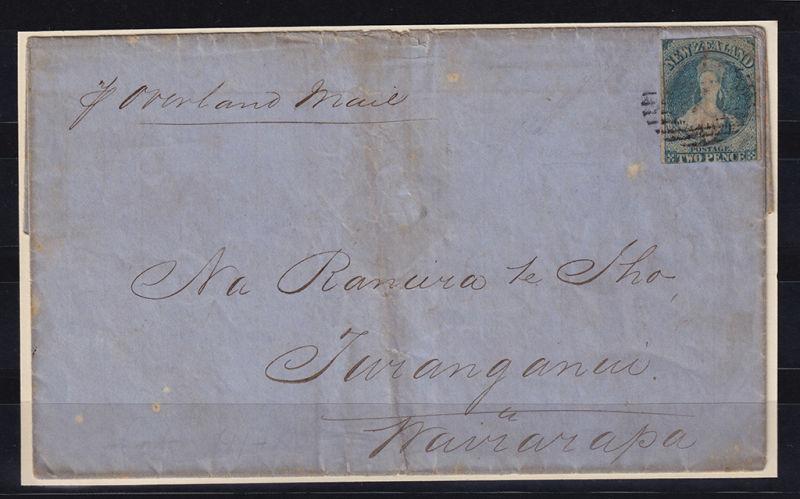 NEW ZEALAND
POSTAGE
TWO PENCE
p Overland Mail
Na Ramira te Iho,
Turanganui
Wairarapa